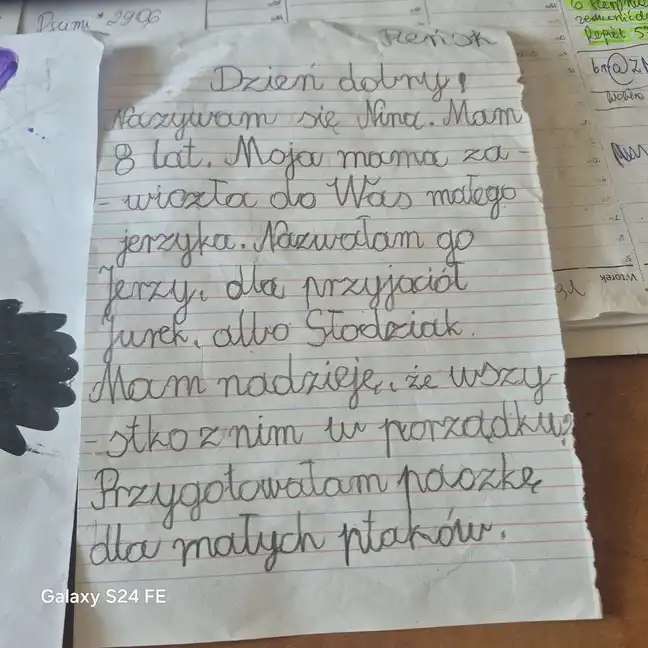 Dzień dobry!
Nazywam się Nina. Mam
8 lat. Moja mama za-
-wiozła do Was małego
jerzyka. Nazwałam go
Jerzy, dla przyjaciół
Jurek, albo Słodziak.
Mam nadzieję, że wszy-
-stko z nim w porządku?
Przygotowałam paczkę
dla małych ptaków.
Galaxy S24 FE